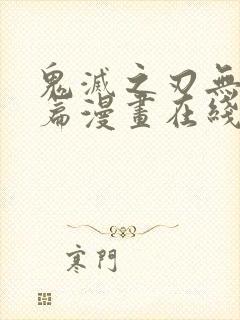 鬼滅之刃無
篇漫畫在綫
寒門